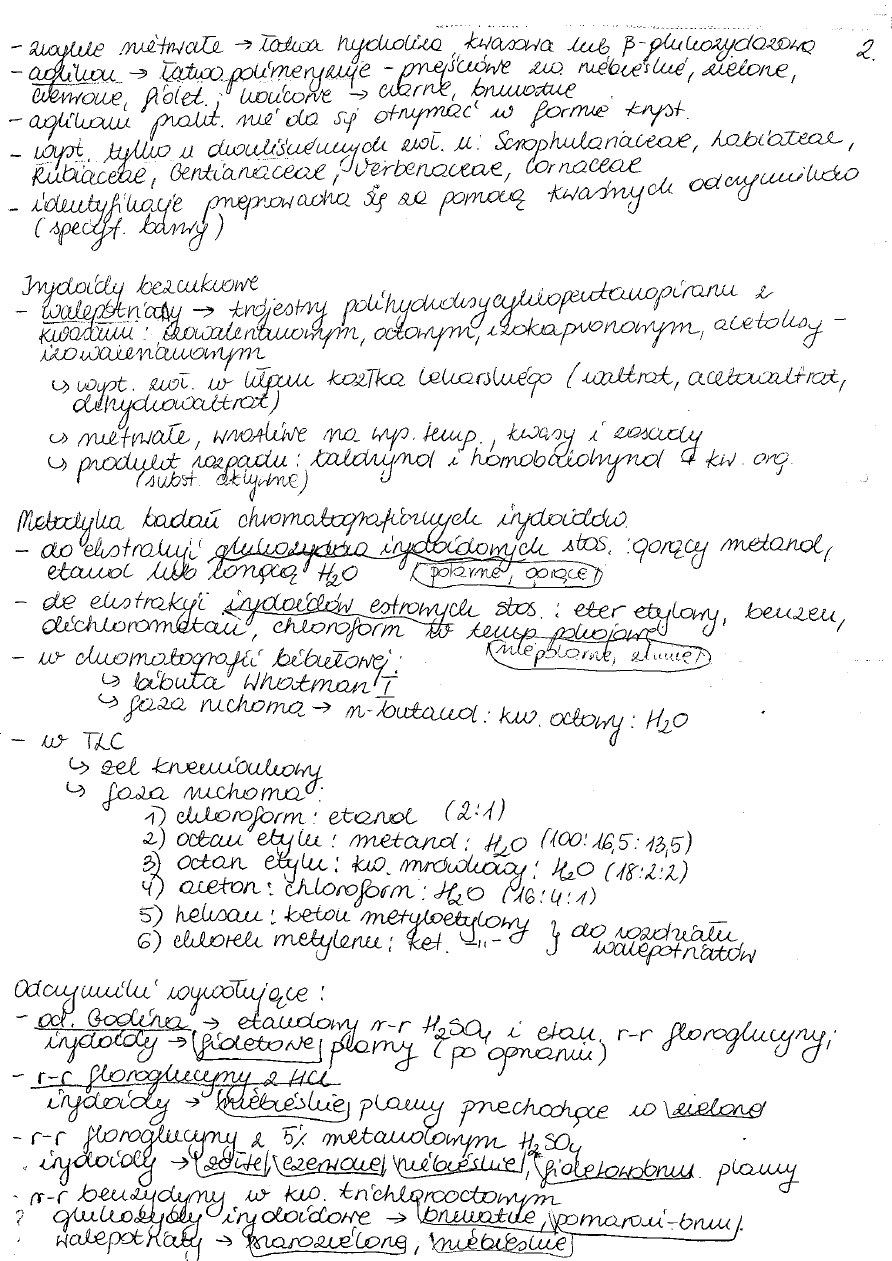 - związki nietrwałe → łatwa hydroliza kwasowa lub β-glukozydazowa 2.
- aglikon → łatwo polimeryzuje - przejściowe zw. niebieskie, zielone,
czerwone, fiolet.; końcowe → czarne, brunatne
- aglikonu prakt. nie da się otrzymać w formie kryst.
- wyst. tylko u dwuliściennych zwł. u: Scrophulariaceae, Labiateae,
Rubiaceae, Gentianaceae, Verbenaceae, Cornaceae
- identyfikację przeprowadza się za pomocą kwaśnych odczynników
(specyf. barwy)
Irydoidy bezcukrowe
- walepotriaty → trójestry polihydroksycyklopentanopiranu z
kwasami: izowalerianowym, octowym, izokapronowym, acetoksy-
izowalerianowym
↳ wyst. zwł. w kłączu kozłka lekarskiego (waltrat, acetowaltrat,
dihydrowaltrat)
↳ nietrwałe, wrażliwe na wys. temp., kwasy i zasady
↳ produkt rozpadu: baldrynal i homobaldrynal + kw. org.
(subst. aktywne)
Metodyka badań chromatograficznych irydoidów
- do ekstrakcji glukozydów irydoidowych stos.: gorący metanol,
etanol lub wrzącą H₂O (polarne, gorące)
- do ekstrakcji irydoidów estrowych stos.: eter etylowy, benzen,
dichlorometan, chloroform w temp pokojowej
(niepolarne, zimne)
- w chromatografii bibułowej:
↳ bibuła Whatman I
↳ faza ruchoma → n-butanol : kw. octowy : H₂O
- w TLC
↳ żel krzemionkowy
↳ faza ruchoma:
1) chloroform : etanol (2:1)
2) octan etylu : metanol : H₂O (100:16,5:13,5)
3) octan etylu : kw. mrówkowy : H₂O (18:2:2)
4) aceton : chloroform : H₂O (16:4:1)
5) heksan : keton metyloetylowy
6) chlorek metylenu : ket. -„- } do rozdziału
walepotriatów
Odczynniki wywołujące:
- od. Godina → etanolowy r-r H₂SO₄ i etan. r-r floroglucyny;
irydoidy → fioletowe plamy (po ogrzaniu)
- r-r floroglucyny z HCl
irydoidy → niebieskie plamy przechodzące w zielone
- r-r floroglucyny z 5% metanolowym H₂SO₄
irydoidy → żółte, czerwone, niebieskie, fioletowobrun. plamy
- r-r benzydyny w kw. trichlorooctowym
? glukozydy irydoidowe → brunatne, pomarań-brun.
walepotriaty → szarozielone, niebieskie